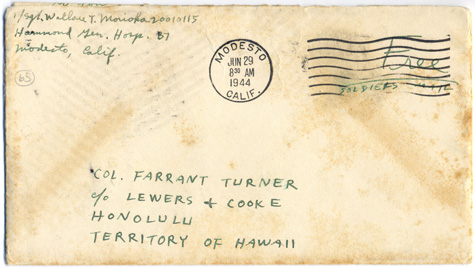 1/Sgt. Wallace T.
Hammond Gen. Hosp. B7
Modesto, Calif.
65
MODESTO
JUN 29
8 30 AM
1944
CALIF.
Free
SOLDIERS MAIL
COL. FARRANT TURNER
c/o LEWERS & COOKE
HONOLULU
TERRITORY OF HAWAII